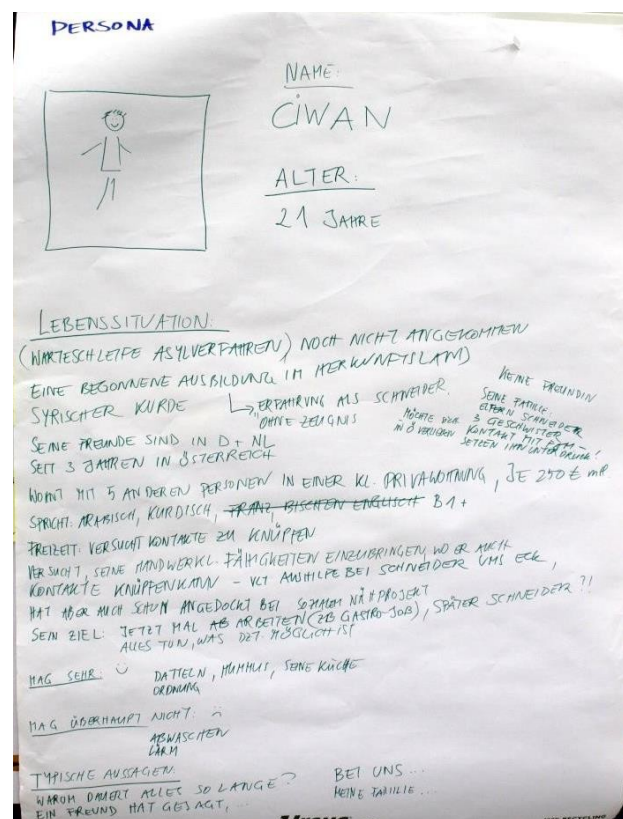 PERSONA
NAME:
CIWAN
ALTER:
21 JAHRE
LEBENSSITUATION:
(WARTESCHLEIFE ASYLVERFAHREN) NOCH NICHT ANGEKOMMEN
EINE BEGONNENE AUSBILDUNG (IM HERKUNFTSLAND)
SYRISCHER KURDE
ERFAHRUNG ALS SCHNEIDER
OHNE ZEUGNIS
MÖCHTE
IN Ö VERBLEIBEN
KEINE FREUNDIN
SEINE FAMILIE:
ELTERN SCHNEIDER
3 GESCHWISTER
KONTAKT MIT FAM-
SETZEN IHN UNTER DRUCK!
SEINE FREUNDE SIND IN D + NL
SEIT 3 JAHREN IN ÖSTERREICH
WOHNT MIT 5 ANDEREN PERSONEN IN EINER KL. PRIVATWOHNUNG, JE 250 €
SPRICHT: ARABISCH, KURDISCH, FRANZ, BISCHEN ENGLISCH B1+
FREIZEIT: VERSUCHT KONTAKTE ZU KNÜPFEN
VERSUCHT, SEINE HANDWERKL. FÄHIGKEITEN EINZUBRINGEN, WO ER AUCH
KONTAKTE KNÜPFEN KANN - VLT AUSHILFE BEI SCHNEIDER UMS ECK,
HAT ABER AUCH SCHON ANGEDOCKT BEI SOZIALEM NÄHPROJEKT
SEIN ZIEL: JETZT MAL ARBEITEN (ZB GASTRO-JOB), SPÄTER SCHNEIDER ?!
ALLES TUN, WAS DZT. MÖGLICH IST
MAG SEHR:
DATTELN, HUMMUS, SEINE KÜCHE
ORDNUNG
MAG ÜBERHAUPT NICHT:
ABWASCHEN
LÄRM
TYPISCHE AUSSAGEN:
WARUM DAUERT ALLES SO LANGE?
EIN FREUND HAT GESAGT, ...
BEI UNS ...
MEINE FAMILIE ...